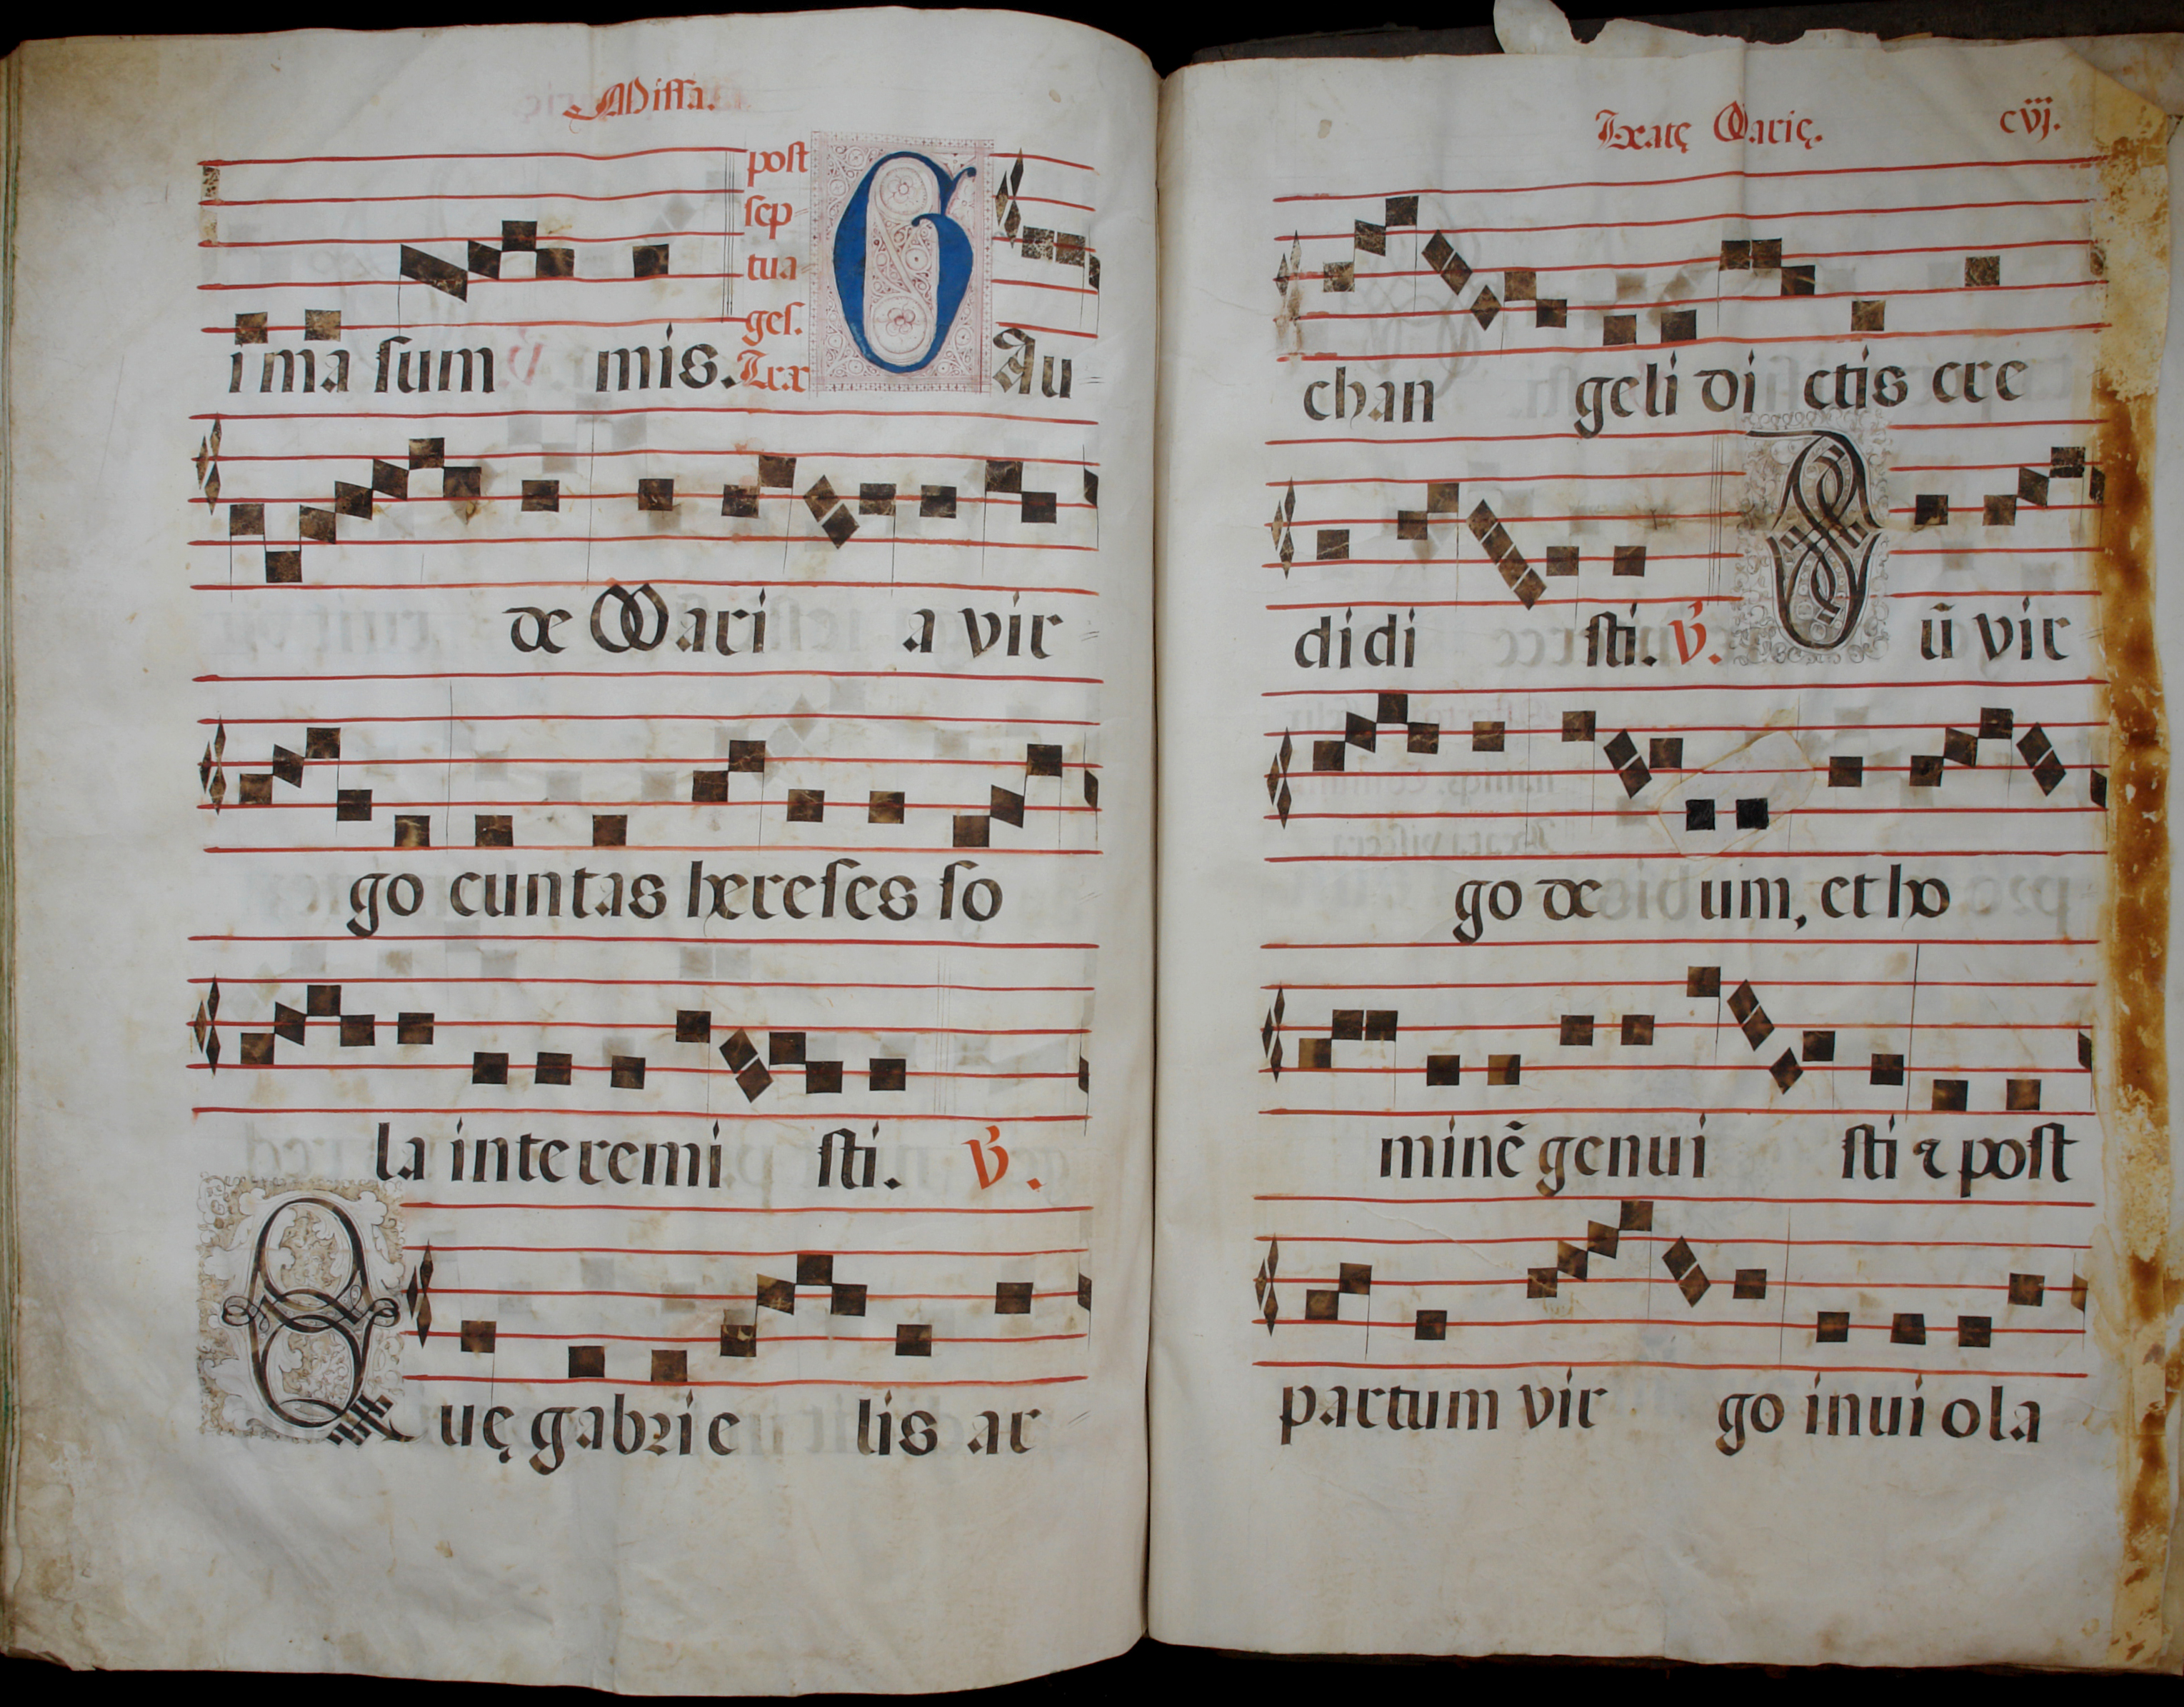 Missa.
post
sep
tua
ges.
Trac
i ma sum mis. G Au
de Mari a vir
go cuntas hereses so
la interemi sti. V.
Q uę gabrie lis ar
Beatę Marię. cvij.
chan geli di ctis cre
didi sti. V. D ũ vir
go de um, et ho
minẽ genui sti ⁊ post
partum vir go inuiola